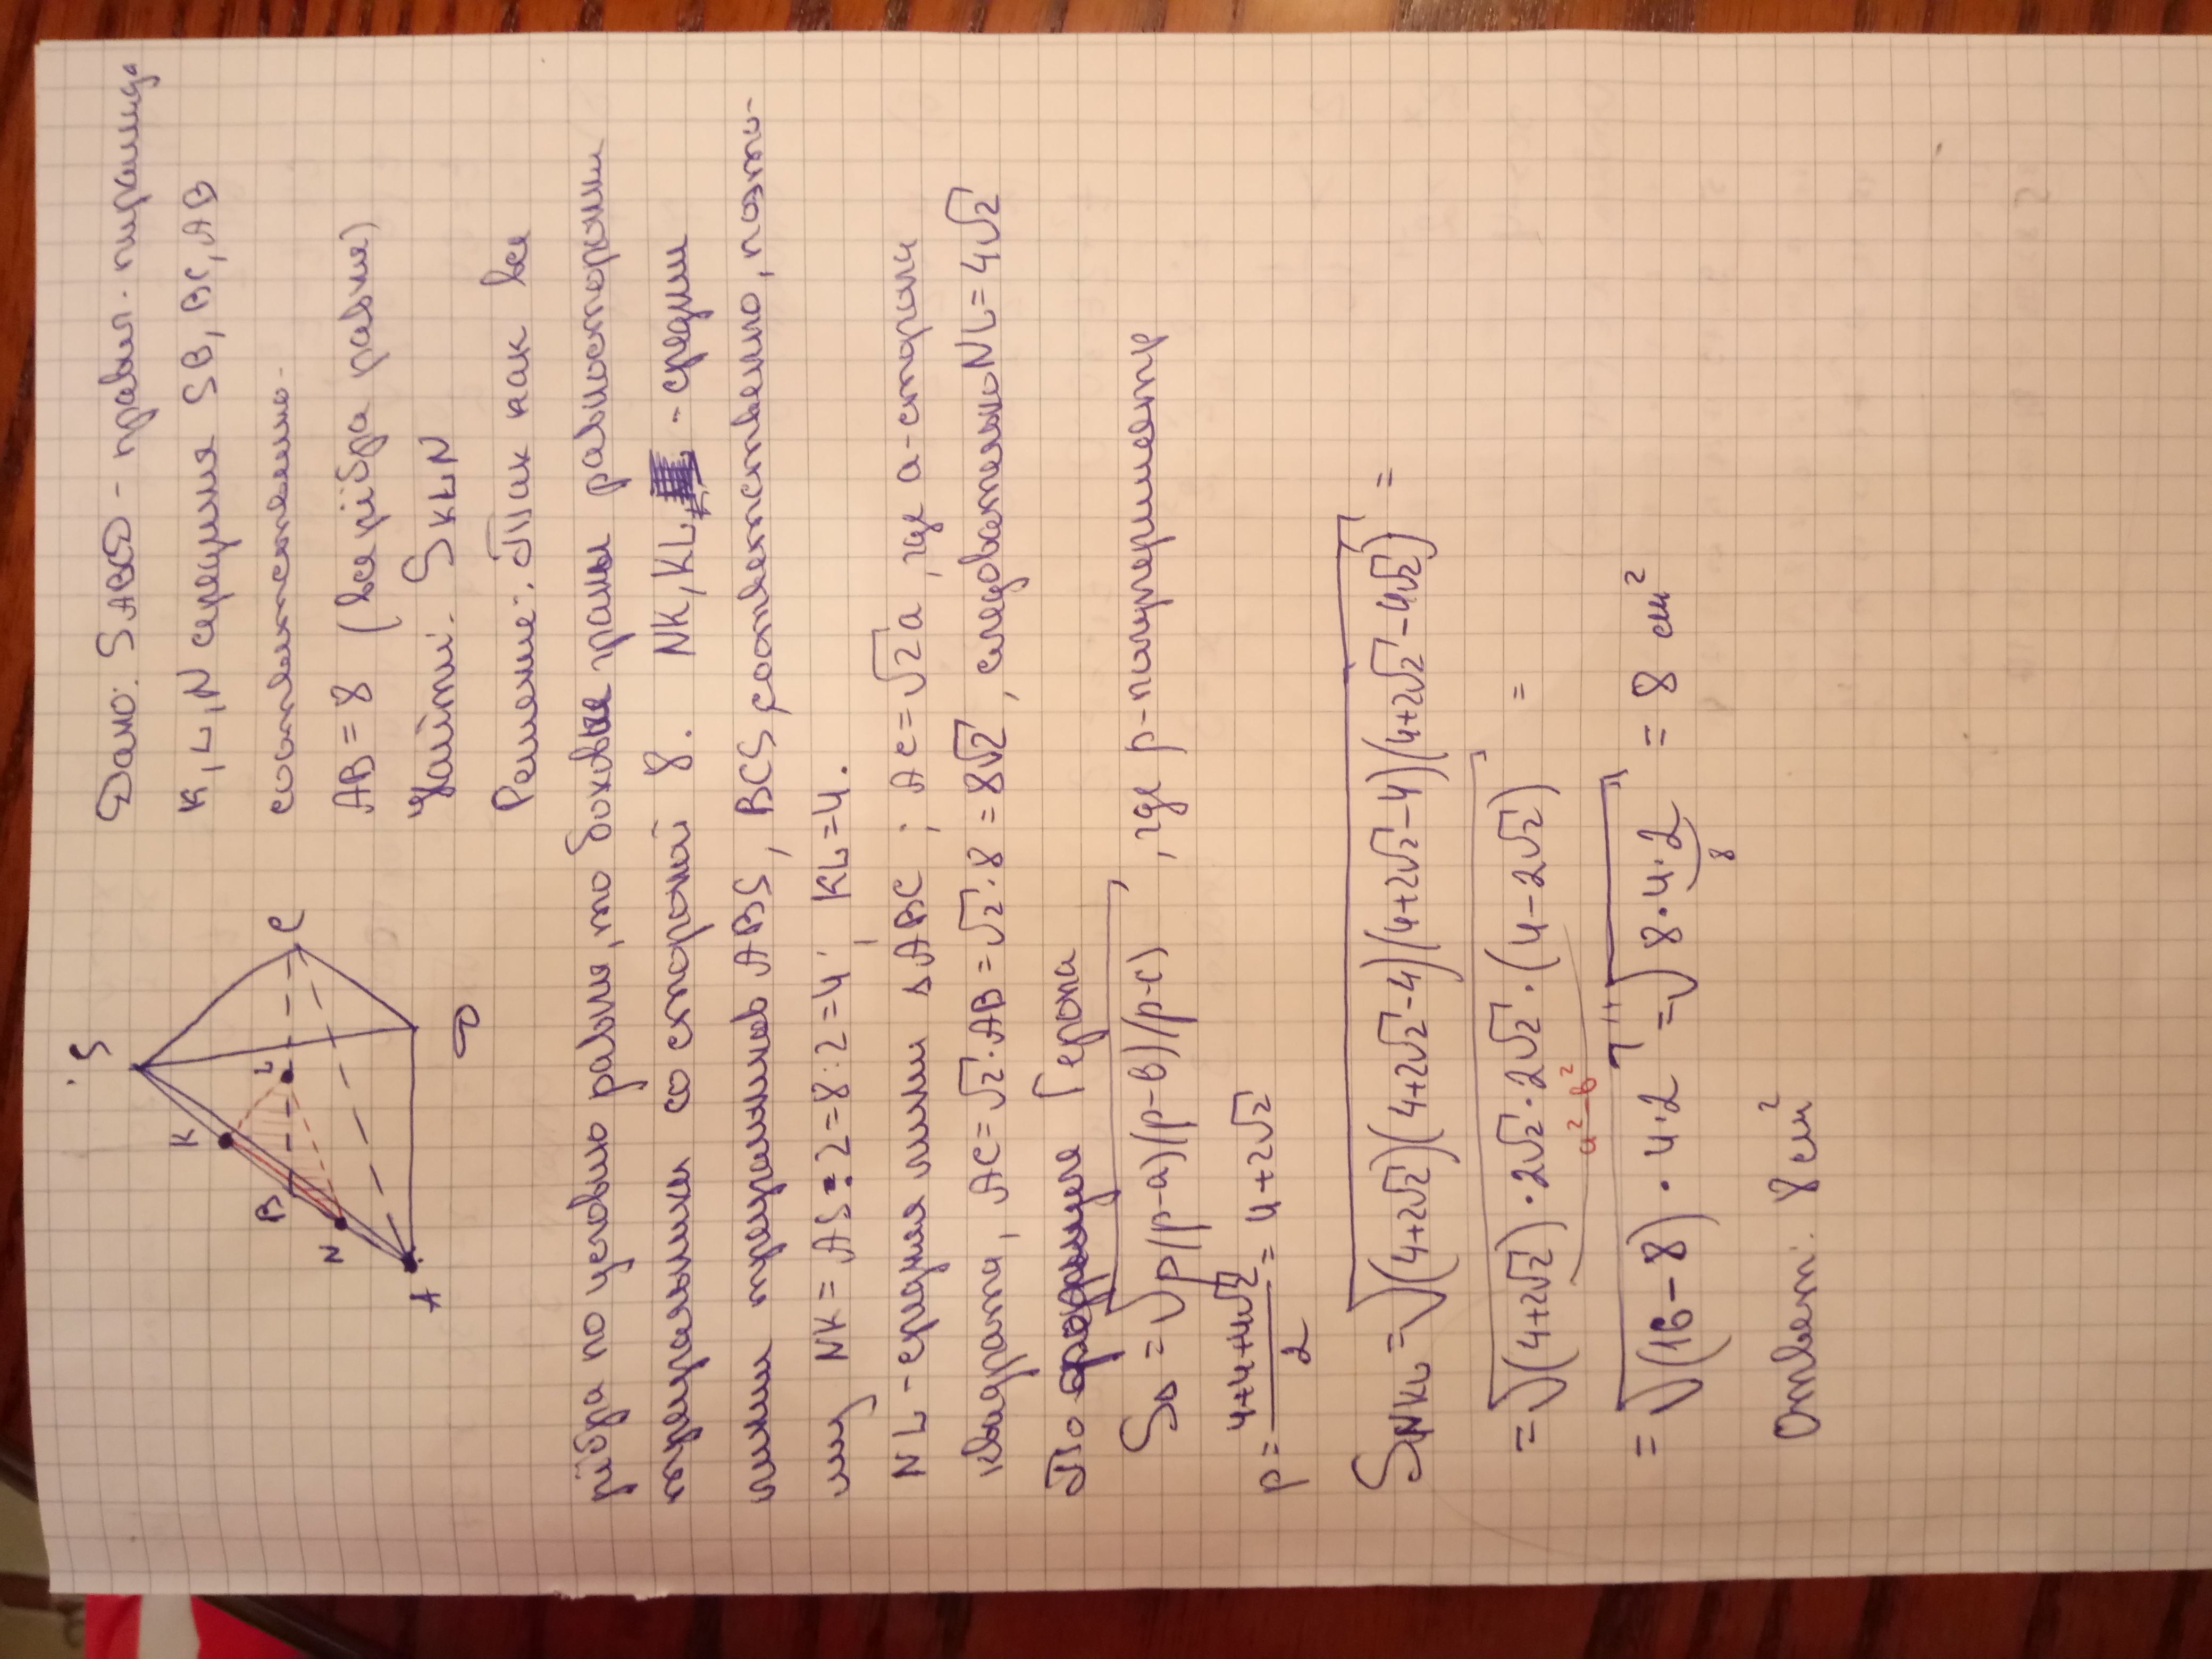 S
K
B
L
N
A
C
D
Дано: SABCD - правил. пирамида
K, L, N середины SB, BC, AB
соответственно.
AB = 8 (все рёбра равные)
Найти: SKLN
Решение: Так как все
рёбра по условию равны, то боковые грани равносторонние
треугольники со стороной 8. NK, KL - средние
линии треугольников ABS, BCS, соответственно, поэто-
му NK = AS : 2 = 8 : 2 = 4; KL = 4.
NL - средняя линия △ABC; AC = √2 a, где a - сторона
квадрата, AC = √2 · AB = √2 · 8 = 8√2, следовательно NL = 4√2
По формуле Герона
S△ = √p(p-a)(p-b)(p-c), где p - полупериметр
p = (4+4+4√2)/2 = 4+2√2
SNKL = √(4+2√2)(4+2√2-4)(4+2√2-4)(4+2√2-4√2) =
= √(4+2√2) · 2√2 · 2√2 · (4-2√2) =
a²-b²
= √(16-8) · 4 · 2 = √8 · 4 · 2 = 8 см²
8
Ответ: 8 см²